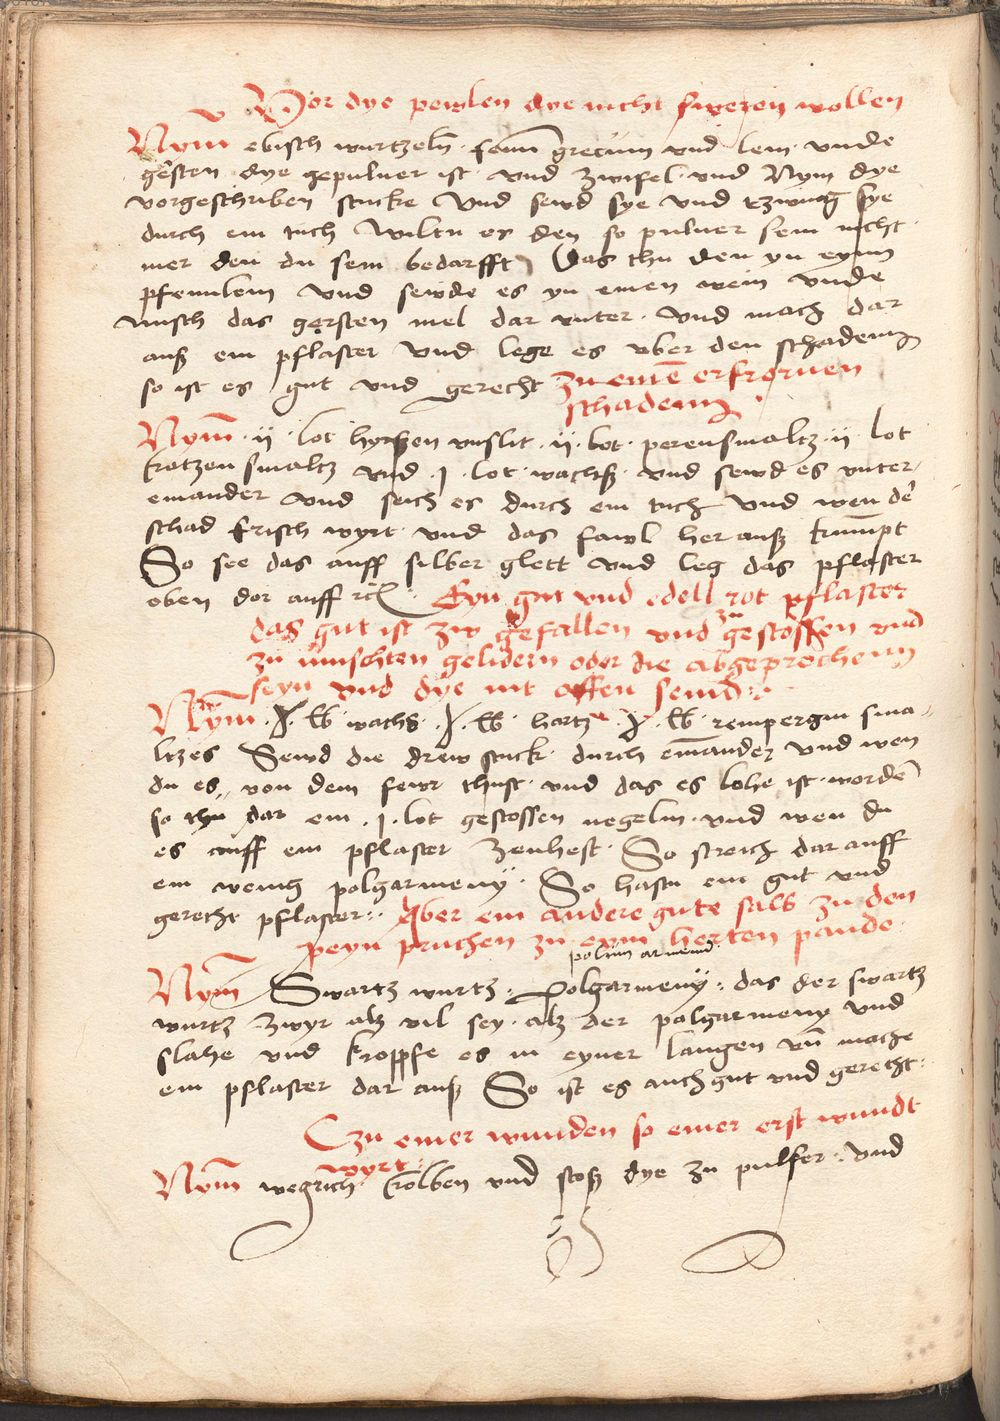 Vor dye pewlen dye nicht swezen wollen
Nym ebisch wurtzeln · fenu grecum vnd lein · vnde
gersten dye gepuluer ist · vnd zwifel · vnd Nym dye
vorgeschriben stucke Vnd sewd sye vnd tzwing sye
durch ein tuch Wiltu es den so puluer sein nicht
mer den du sein bedarfft Das thu den yn eynn
pfennlein vnd sewde es yn einen wein vnde
misch das gersten mel dar vnter · Vnd mach dar
auß ein pflaster Vnd lege es vber den schadenn
so ist es gut vnd gerecht Zu eine erfrornen
schadenn ·
Nym · ij · lot hyrßen vnslit · ij · lot · perensmaltz · ij · lot
katzen smaltz vnd · j · lot · wachß · vnd sewd es vnter
einander Vnd seich es durch ein tuch Vnd wen der
schad frisch wyrt · vnd das fawl her auß kumpt
So see das auff silber glett vnd leg das pflaster
oben dor auff rc Eyn gut vnd edell rot pflaster
das gut ist zw gefallen vnd zu gestossen vnd
zu muschten gelidern oder die abgeprochenn
seyn vnd dye nit offen seind :
Nym · j · lb · wachs · j · lb · hartz · j · lb · rempergin sma
ltzes Sewd die drew stuck · durch einander Vnd wen
du es von dem fewr thust · vnd das es lohe ist worden
so thu dar ein · j · lot gestossen negelin · vnd wen du
es auff ein pflaster zeuhest · So streich dar auff
ein wenig polgarmeny · So hastu ein gut vnd
gerecht pflaster : Aber ein andere gute salb zu den
peyn pruchen zu eynn herten pande ·
polium armenum
Nym Swartz wurtz : Polgarmeny : das der swartz
wurtz zwyr alz vil sey · alz der polgarmeny vnd
slahe vnd kropffe es in eyner laugen vn mache
ein pflaster dar auß So ist es auch gut vnd gerecht :
Czu einer wunden so einer erst wundt
wyrt :
Nym wegrich kolben vnd stoß dye zu pulfer : vnd